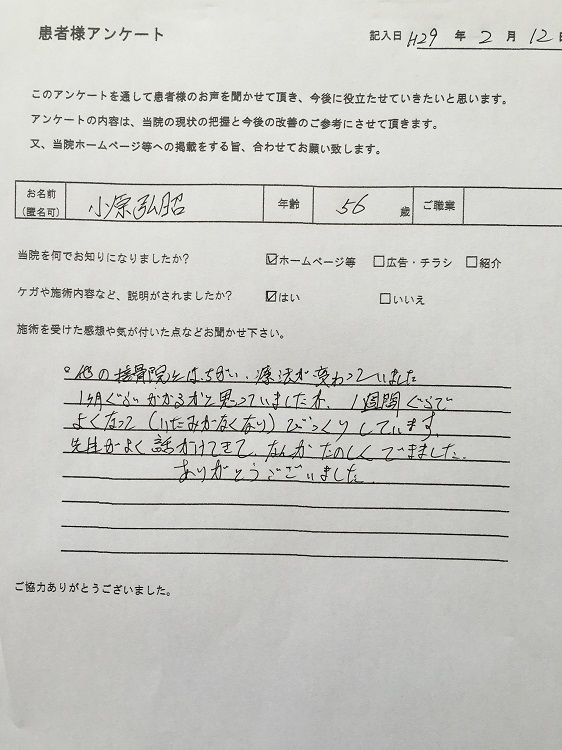 患者様アンケート
記入日 H29 年 2 月 12 日
このアンケートを通して患者様のお声を聞かせて頂き、今後に役立たせていきたいと思います。
アンケートの内容は、当院の現状の把握と今後の改善のご参考にさせて頂きます。
又、当院ホームページ等への掲載をする旨、合わせてお願い致します。
お名前 (匿名可) 小原弘昭 年齢 56 歳 ご職業
当院を何でお知りになりましたか? ☑ホームページ等 □広告・チラシ □紹介
ケガや施術内容など、説明がされましたか? ☑はい □いいえ
施術を受けた感想や気が付いた点などお聞かせ下さい。
○他の接骨院とはちがい、療法が変わっていました
1ヶ月ぐらいかかるかと思っていましたが、1週間ぐらいで
よくなって(いたみがなくなり)びっくりしています。
先生がよく話かけてきて、なんか たのしく できました。
ありがとうございました。
ご協力ありがとうございました。